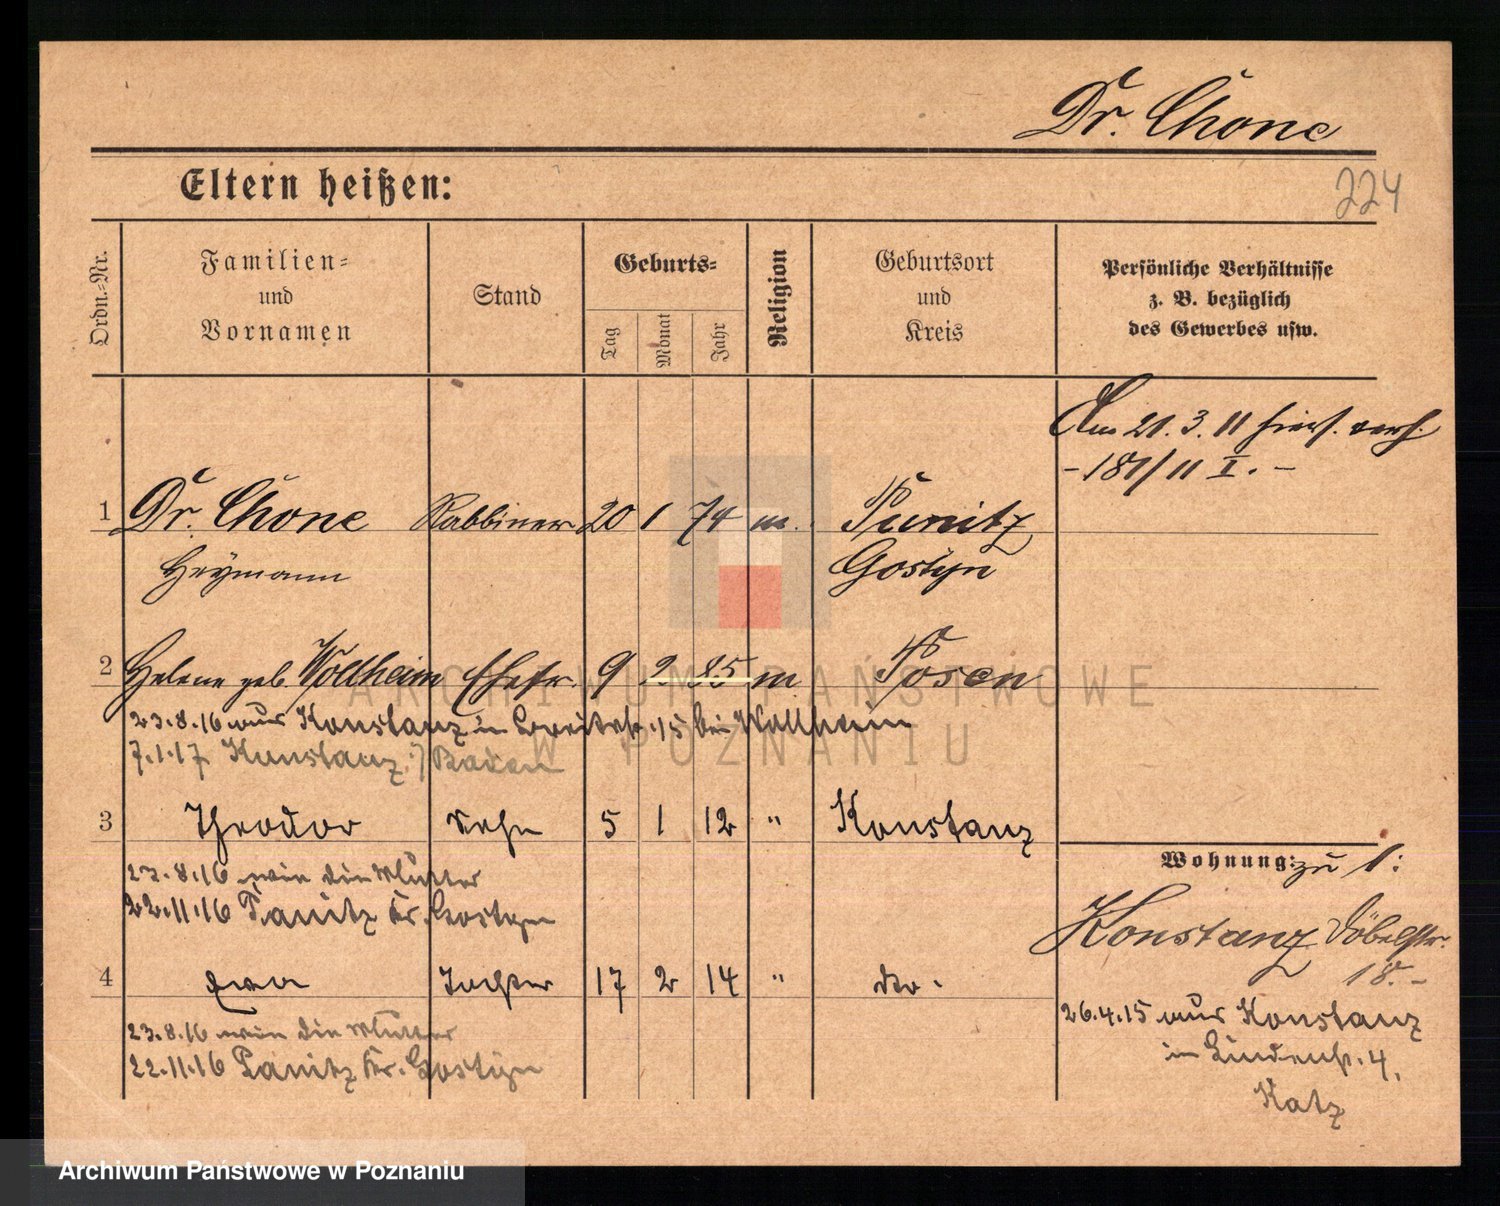 Dr. Chone
224
Eltern heißen:
Ordn.-Nr.
Familien-
und
Vornamen
Stand
Geburts-
Tag
Monat
Jahr
Religion
Geburtsort
und
Kreis
Persönliche Verhältnisse
z. B. bezüglich
des Gewerbes usw.
Am 21.3.11 hierh. verh.
- 181/11 I. -
1 Dr. Chone Rabbiner 20 1 74 m. Punitz
Heymann Gostyn
2 Helene geb. Wollheim Ehefr. 9 2 85 m Posen
23.8.16 aus Konstanz in 15 bei Wollheim
7.1.17 Konstanz / Baden
3 Theodor Sohn 5 1 12 " Konstanz
23.8.16 wie die Mutter
22.11.16 Panitz Kr. Gostyn
4 Eva Tochter 17 2 14 " do.
23.8.16 wie die Mutter
22.11.16 Panitz Kr. Gostyn
Wohnung: zu 1:
Konstanz Döbelstr.
18. -
26.4.15 aus Konstanz
in Lindenstr. 4,
Katz
ARCHIWUM PAŃSTWOWE
W POZNANIU
Archiwum Państwowe w Poznaniu